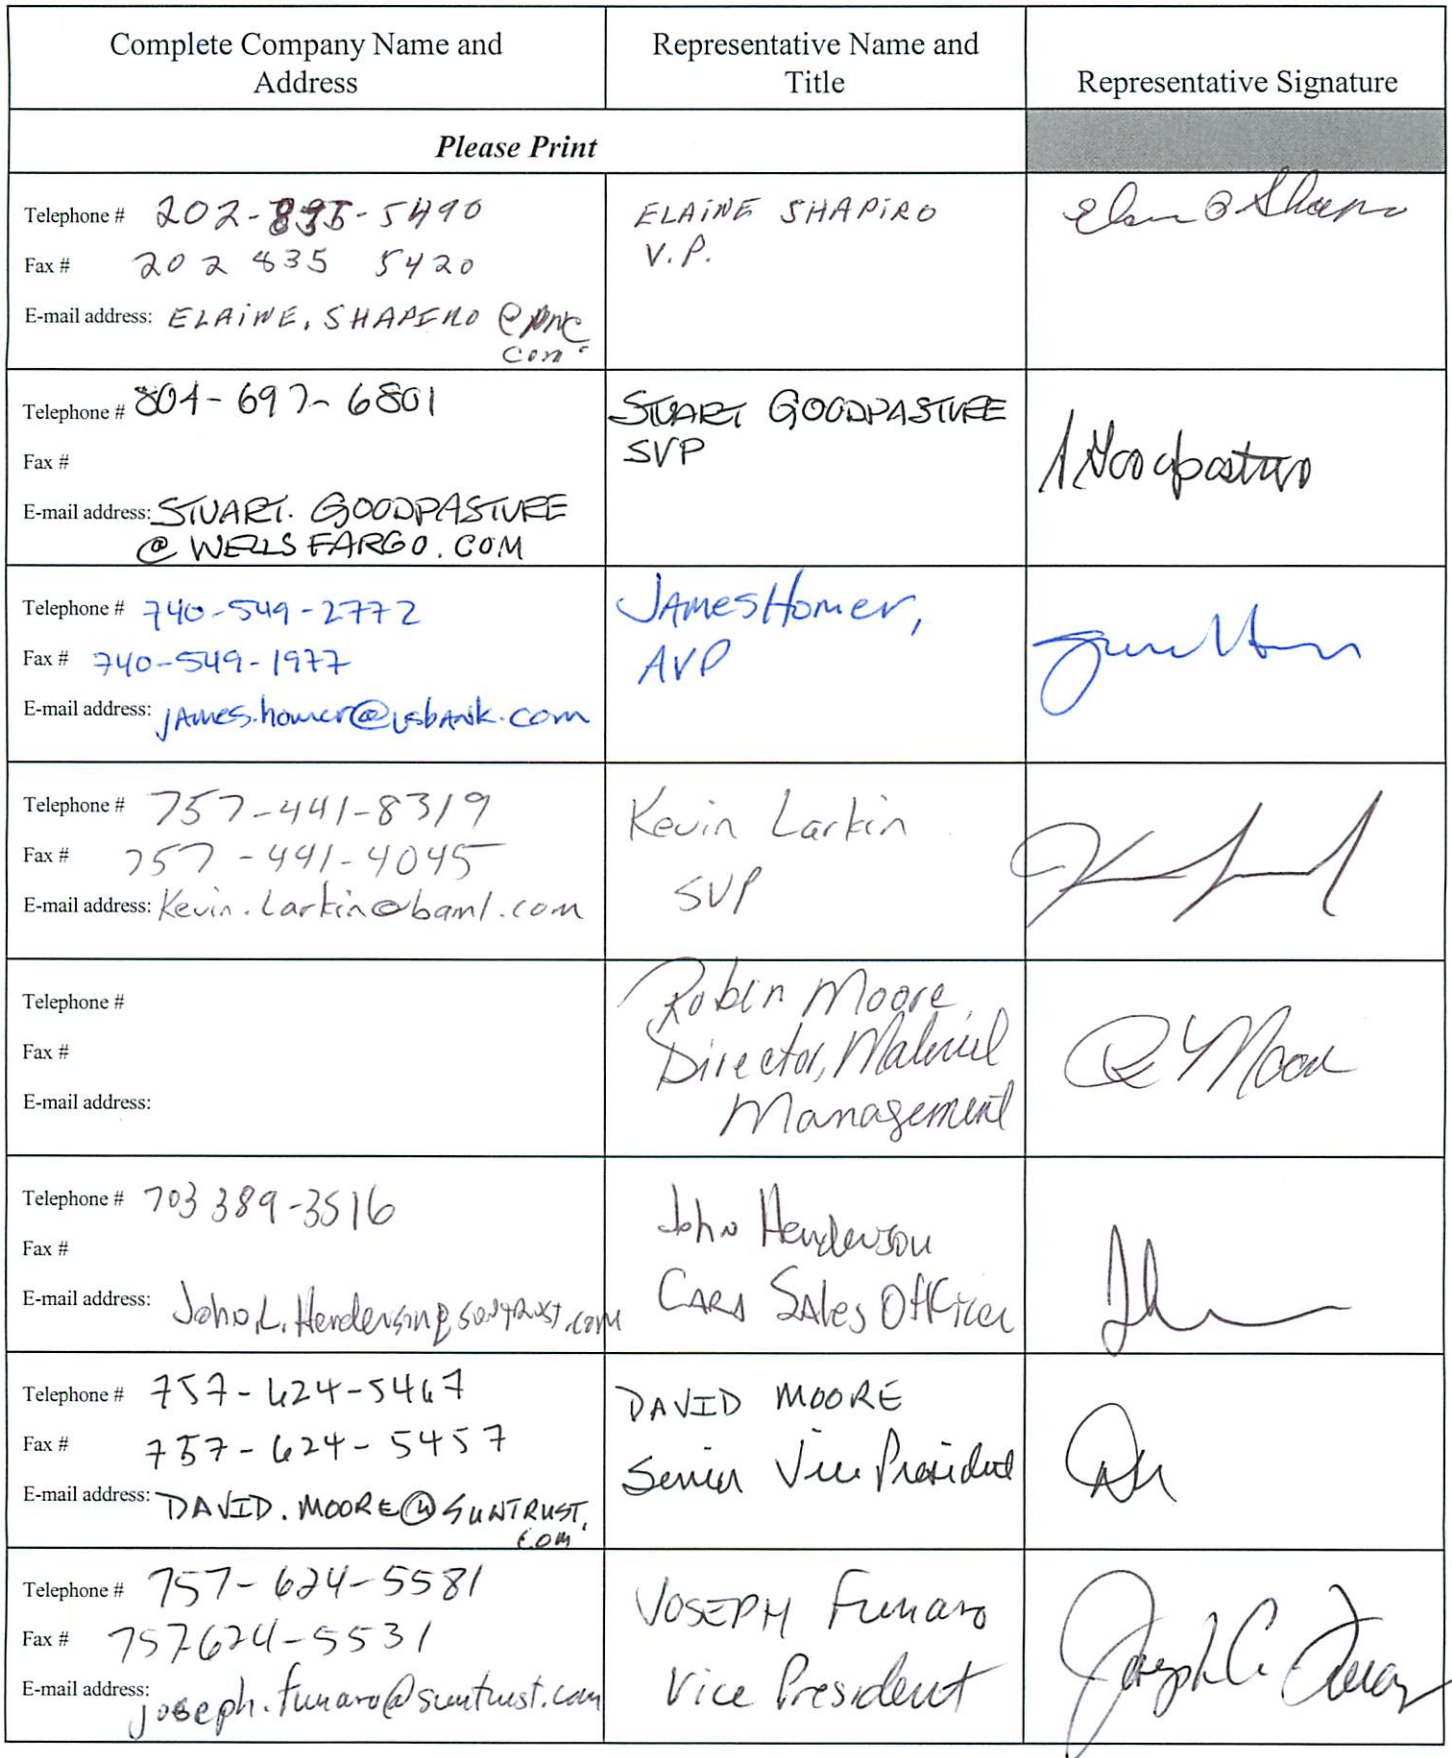 Complete Company Name and
Address
Representative Name and
Title
Representative Signature
Please Print
Telephone # 202-835-5490
Fax # 202 835 5420
E-mail address: ELAINE.SHAPIRO @pnc
com
ELAINE SHAPIRO
V.P.
Telephone # 804-697-6801
Fax #
E-mail address: STUART. GOODPASTURE
@ WELLSFARGO.COM
STUART GOODPASTURE
SVP
Telephone # 740-549-2772
Fax # 740-549-1977
E-mail address: james.homer@usbank.com
James Homer,
AVP
Telephone # 757-441-8319
Fax # 757-441-4045
E-mail address: Kevin.Larkin@baml.com
Kevin Larkin
SVP
Telephone #
Fax #
E-mail address:
Robin Moore
Director, Material
Management
Telephone # 703 389-3516
Fax #
E-mail address: John.L.Henderson@suntrust.com
John Henderson
CARD Sales Officer
Telephone # 757-624-5467
Fax # 757-624-5457
E-mail address: DAVID.MOORE@SUNTRUST.
COM
DAVID MOORE
Senior Vice President
Telephone # 757-624-5581
Fax # 757624-5531
E-mail address: joseph.funaro@suntrust.com
JOSEPH Funaro
Vice President
Joseph C. Funaro